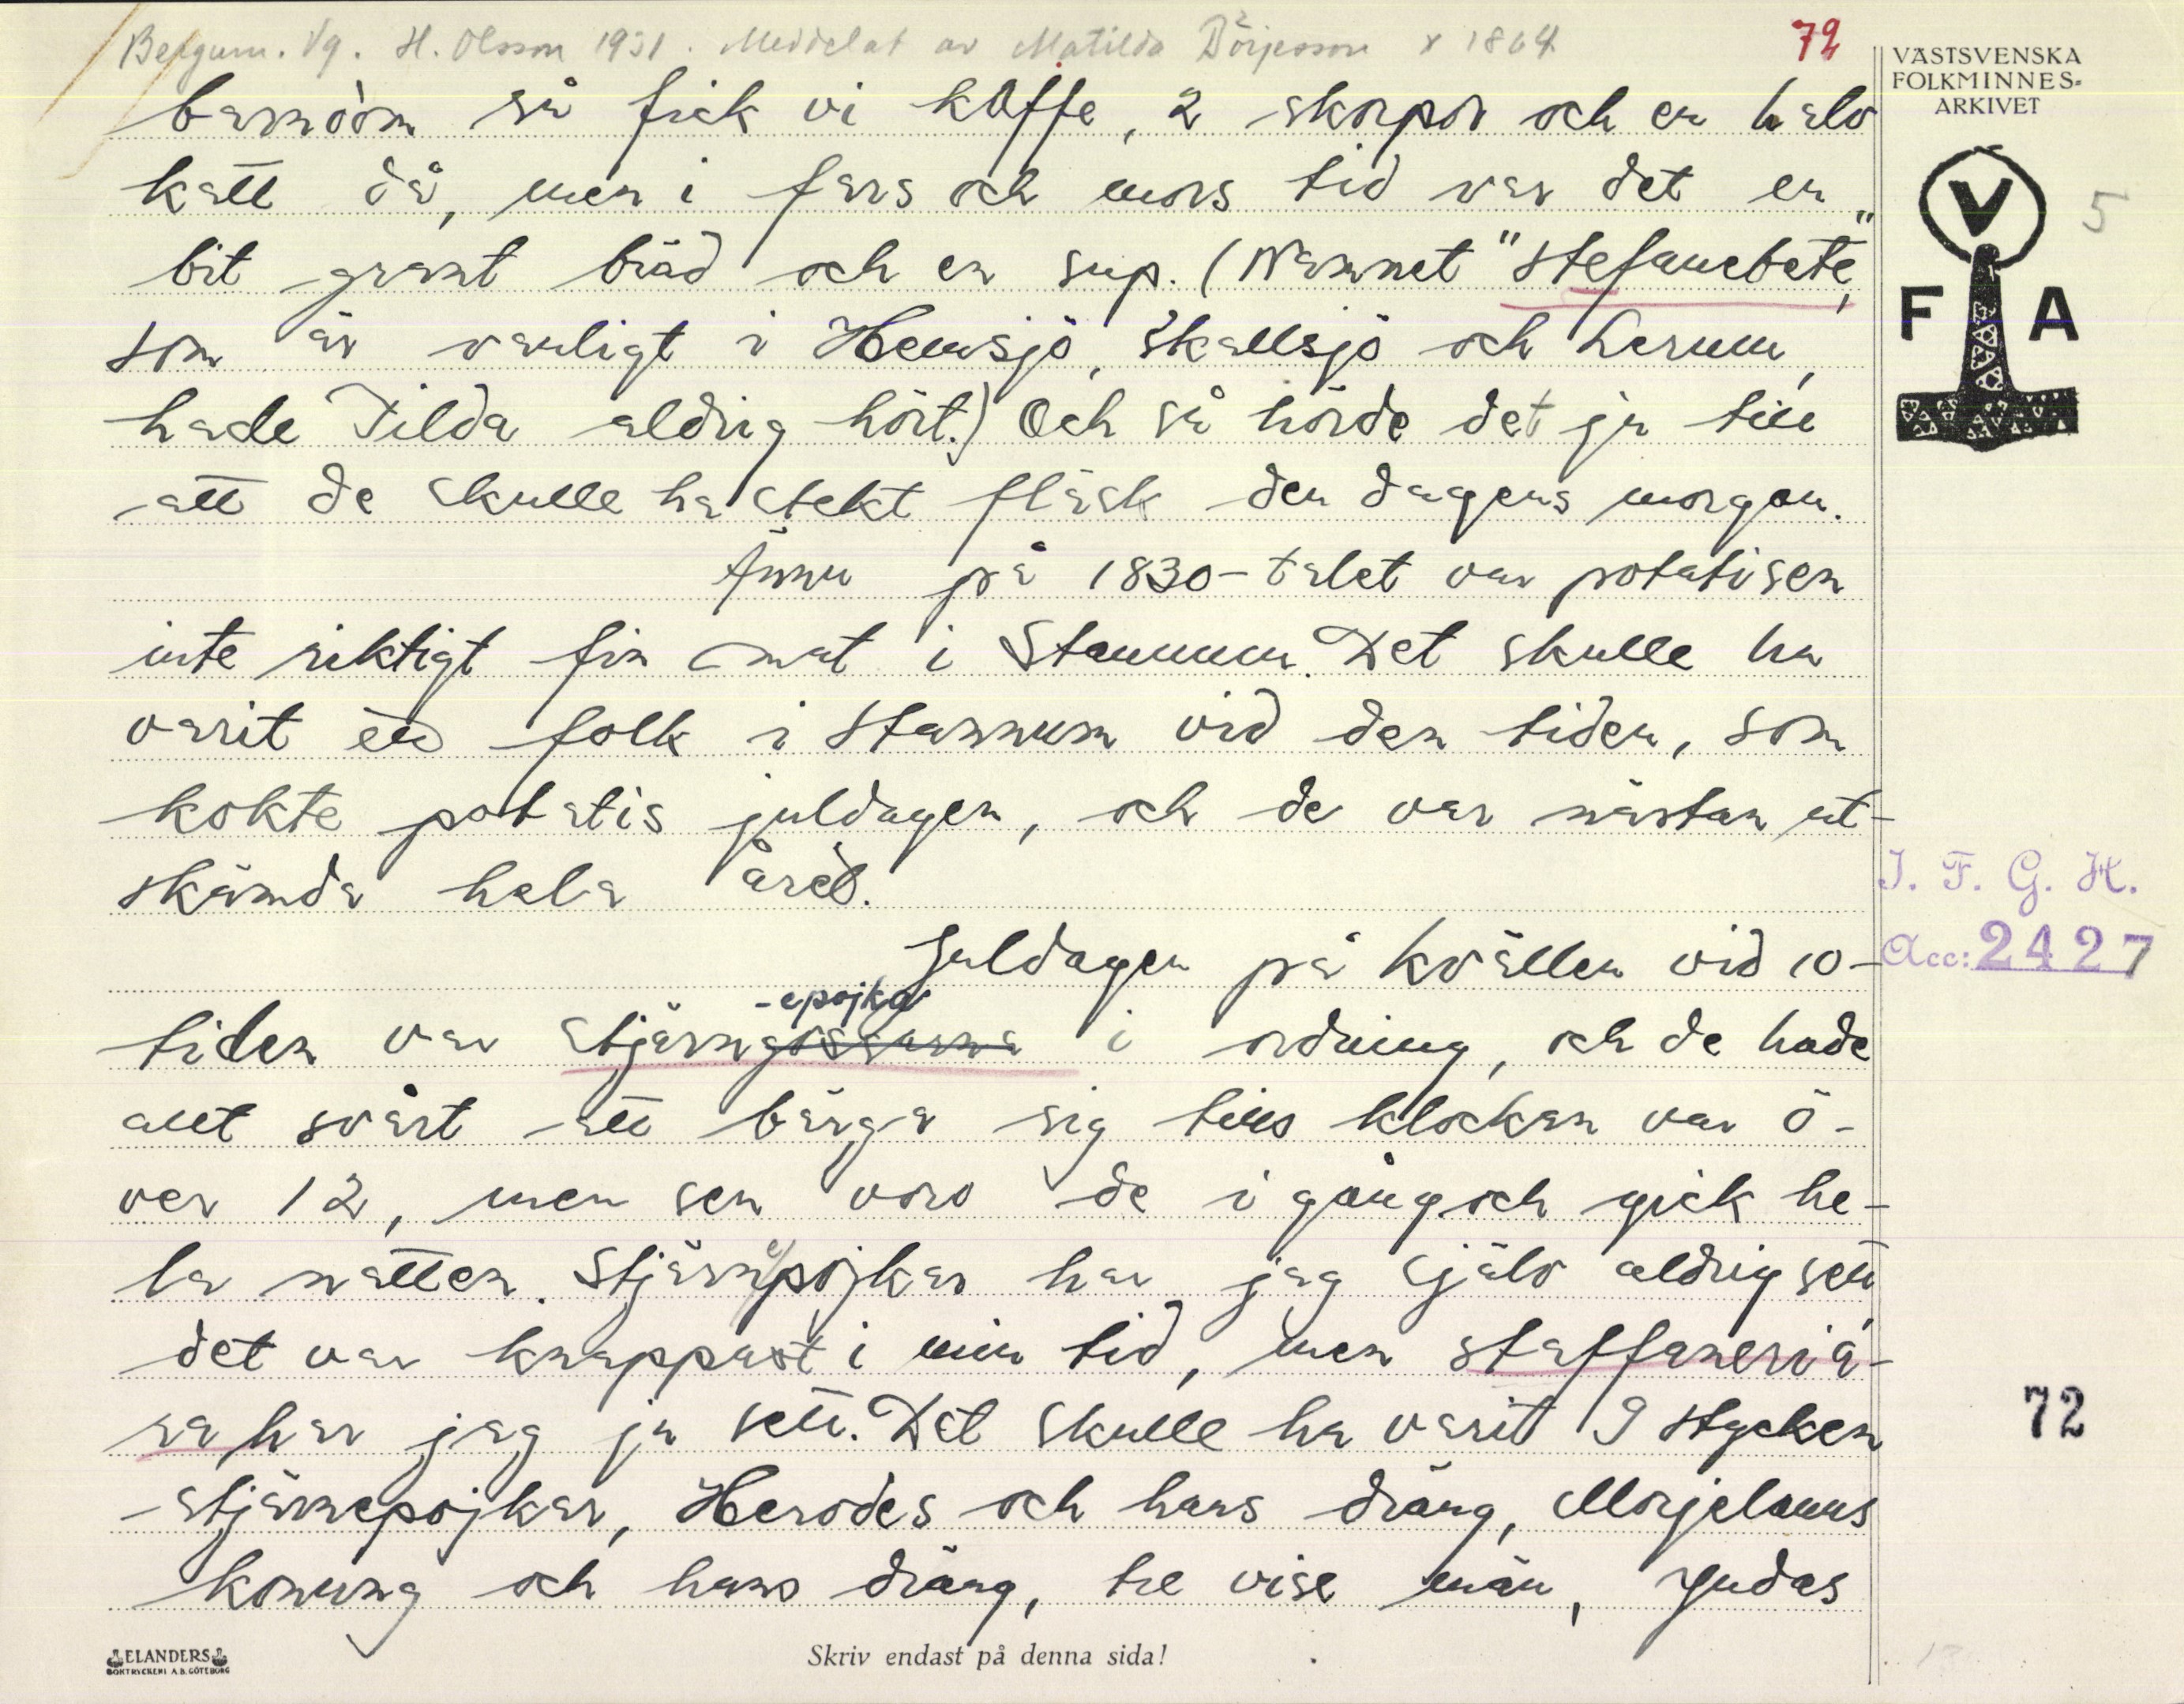 Bergum. Vg. H. Olsson 1931. Meddelat av Matilda Börjesson * 1864
72
VÄSTSVENSKA
FOLKMINNES-
ARKIVET
V
F A
5
barndom så fick vi kaffe, 2 skorpor och en halv
katt då, men i fars och mors tid var det en
bit grant bröd och en sup. (Namnet "stefanebete",
som är vanligt i Hemsjö, Skallsjö och Lerum,
hade Tilda aldrig hört.) Och så hörde det ju till
att de skulle ha stekt fläsk den dagens morgon.
Ännu på 1830-talet var potatisen
inte riktigt fin mat i Stannum. Det skulle ha
varit ett folk i Stannum vid den tiden, som
kokte potatis juldagen, och de var nästan ut-
skämda hela året.
Juldagen på kvällen vid 10-
-epojka
tiden var stjärngossarna i ordning, och de hade
allt svårt att bärga sig tills klockan var ö-
ver 12, men sen voro de i gång och gick he-
la natten. Stjärnepojkar har jag själv aldrig sett,
det var knappast i min tid, men staffaneria-
ra har jag ju sett. Det skulle ha varit 9 stycken
stjärnepojkar, Herodes och hans dräng, Morjelanns
konung och hans dräng, tre vise män, Judas
I. F. G. H.
Acc: 2427
72
ELANDERS
BOKTRYCKERI A.B. GÖTEBORG
Skriv endast på denna sida!